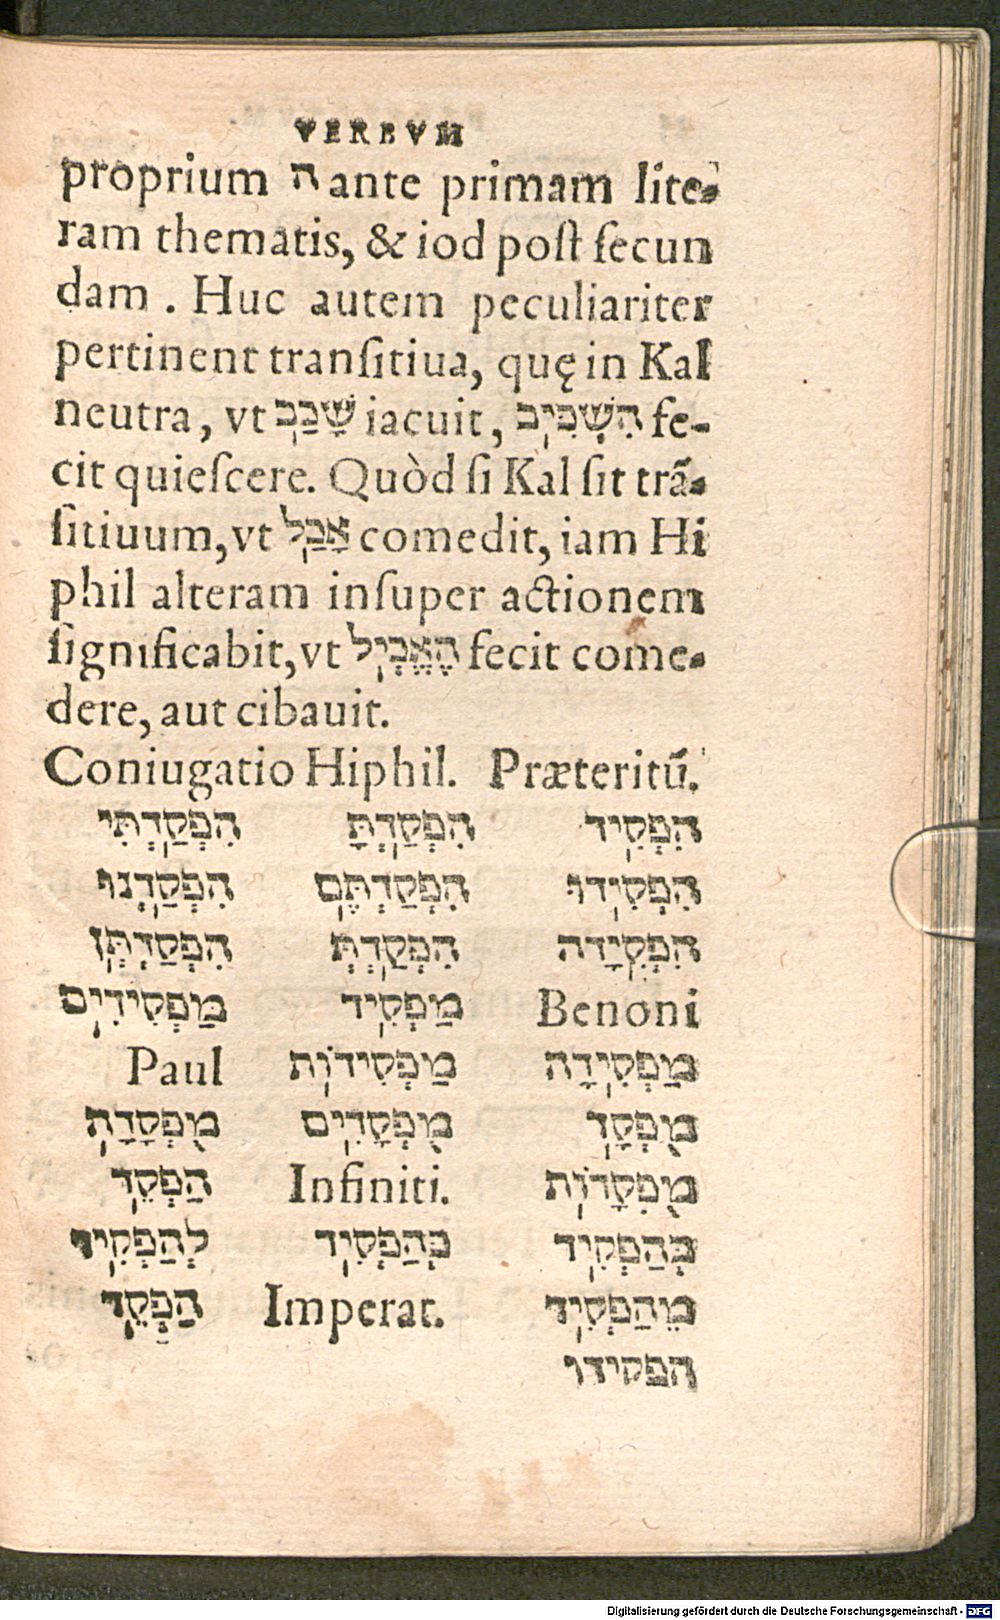 VERBVM
proprium ה ante primam lite-
ram thematis, & iod poſt ſecun
dam . Huc autem peculiariter
pertinent tranſitiua, quę in Kal
neutra, vt שָׁכַב iacuit, הִשְׁכִּיב fe-
cit quieſcere. Quòd ſi Kal ſit trã-
ſitiuum, vt אָכַל comedit, iam Hi
phil alteram inſuper actionem
ſignificabit, vt הֶאֱכִיל fecit come-
dere, aut cibauit.
Coniugatio Hiphil. Præteritũ.
הִפְקִיד הִפְקַדְתָּ הִפְקַדְתִּי
הִפְקִידוּ הִפְקַדְתֶּם הִפְקַדְנוּ
הִפְקִידָה הִפְקַדְתְּ הִפְקַדְתֶּן
Benoni מַפְקִיד מַפְקִידִים
מַפְקִידָה מַפְקִידוֹת Paul
מֻפְקָד מֻפְקָדִים מֻפְקָדַת
מֻפְקָדוֹת Infiniti. הַפְקֵד
בְּהַפְקִיד כְּהַפְקִיד לְהַפְקִיד
מֵהַפְקִיד Imperat. הַפְקֵד
הפקידו
Digitalisierung gefördert durch die Deutsche Forschungsgemeinschaft - DFG